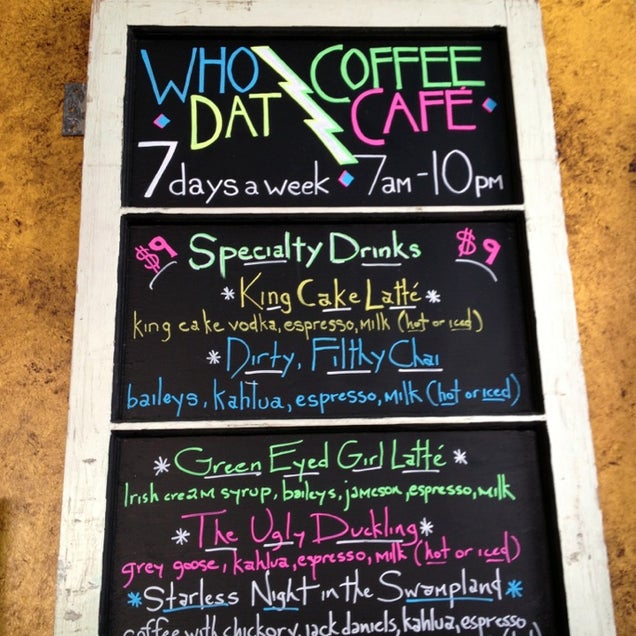 WHO DAT COFFEE CAFÉ
7 days a week • 7am-10pm
$9 Specialty Drinks $9
*King Cake Latté*
king cake vodka, espresso, milk (hot or iced)
*Dirty, Filthy Chai
baileys, kahlua, espresso, milk (hot or iced)
*Green Eyed Girl Latté*
Irish cream syrup, baileys, jameson, espresso, milk
*The Ugly Duckling*
grey goose, kahlua, espresso, milk (hot or iced)
*Starless Night in the Swampland*
coffee with chickory, jack daniels, kahlua, espresso